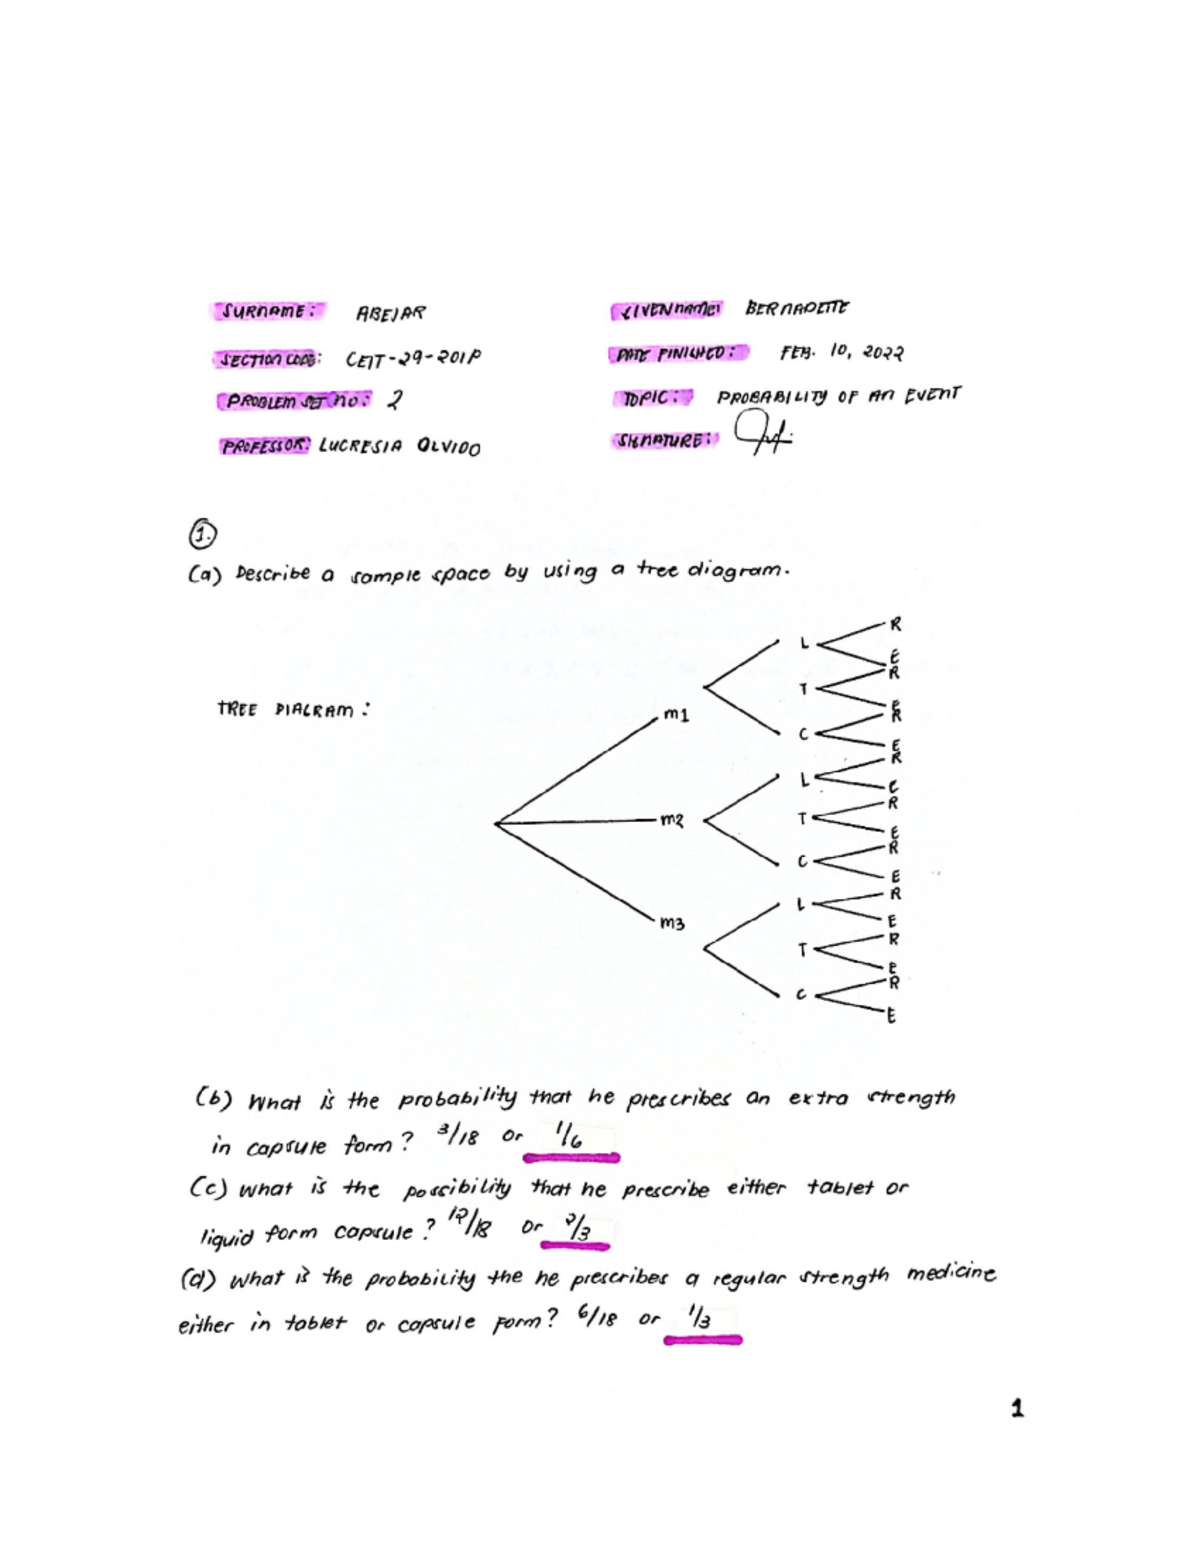 SURNAME: ABEJAR
GIVEN NAME: BERNADETTE
SECTION CODE: CEIT-29-201P
DATE FINISHED: FEB. 10, 2022
PROBLEM SET NO: 2
TOPIC: PROBABILITY OF AN EVENT
PROFESSOR: LUCRESIA OLVIDO
SIGNATURE:
1.
(a) Describe a sample space by using a tree diagram.
TREE DIAGRAM:
m1
L
R
E
T
R
E
C
R
E
m2
L
R
E
T
R
E
C
R
E
m3
L
R
E
T
R
E
C
R
E
(b) What is the probability that he prescribes an extra strength
in capsule form? 3/18 or 1/6
(c) What is the possibility that he prescribe either tablet or
liquid form capsule? 12/18 or 2/3
(d) What is the probability the he prescribes a regular strength medicine
either in tablet or capsule form? 6/18 or 1/3
1